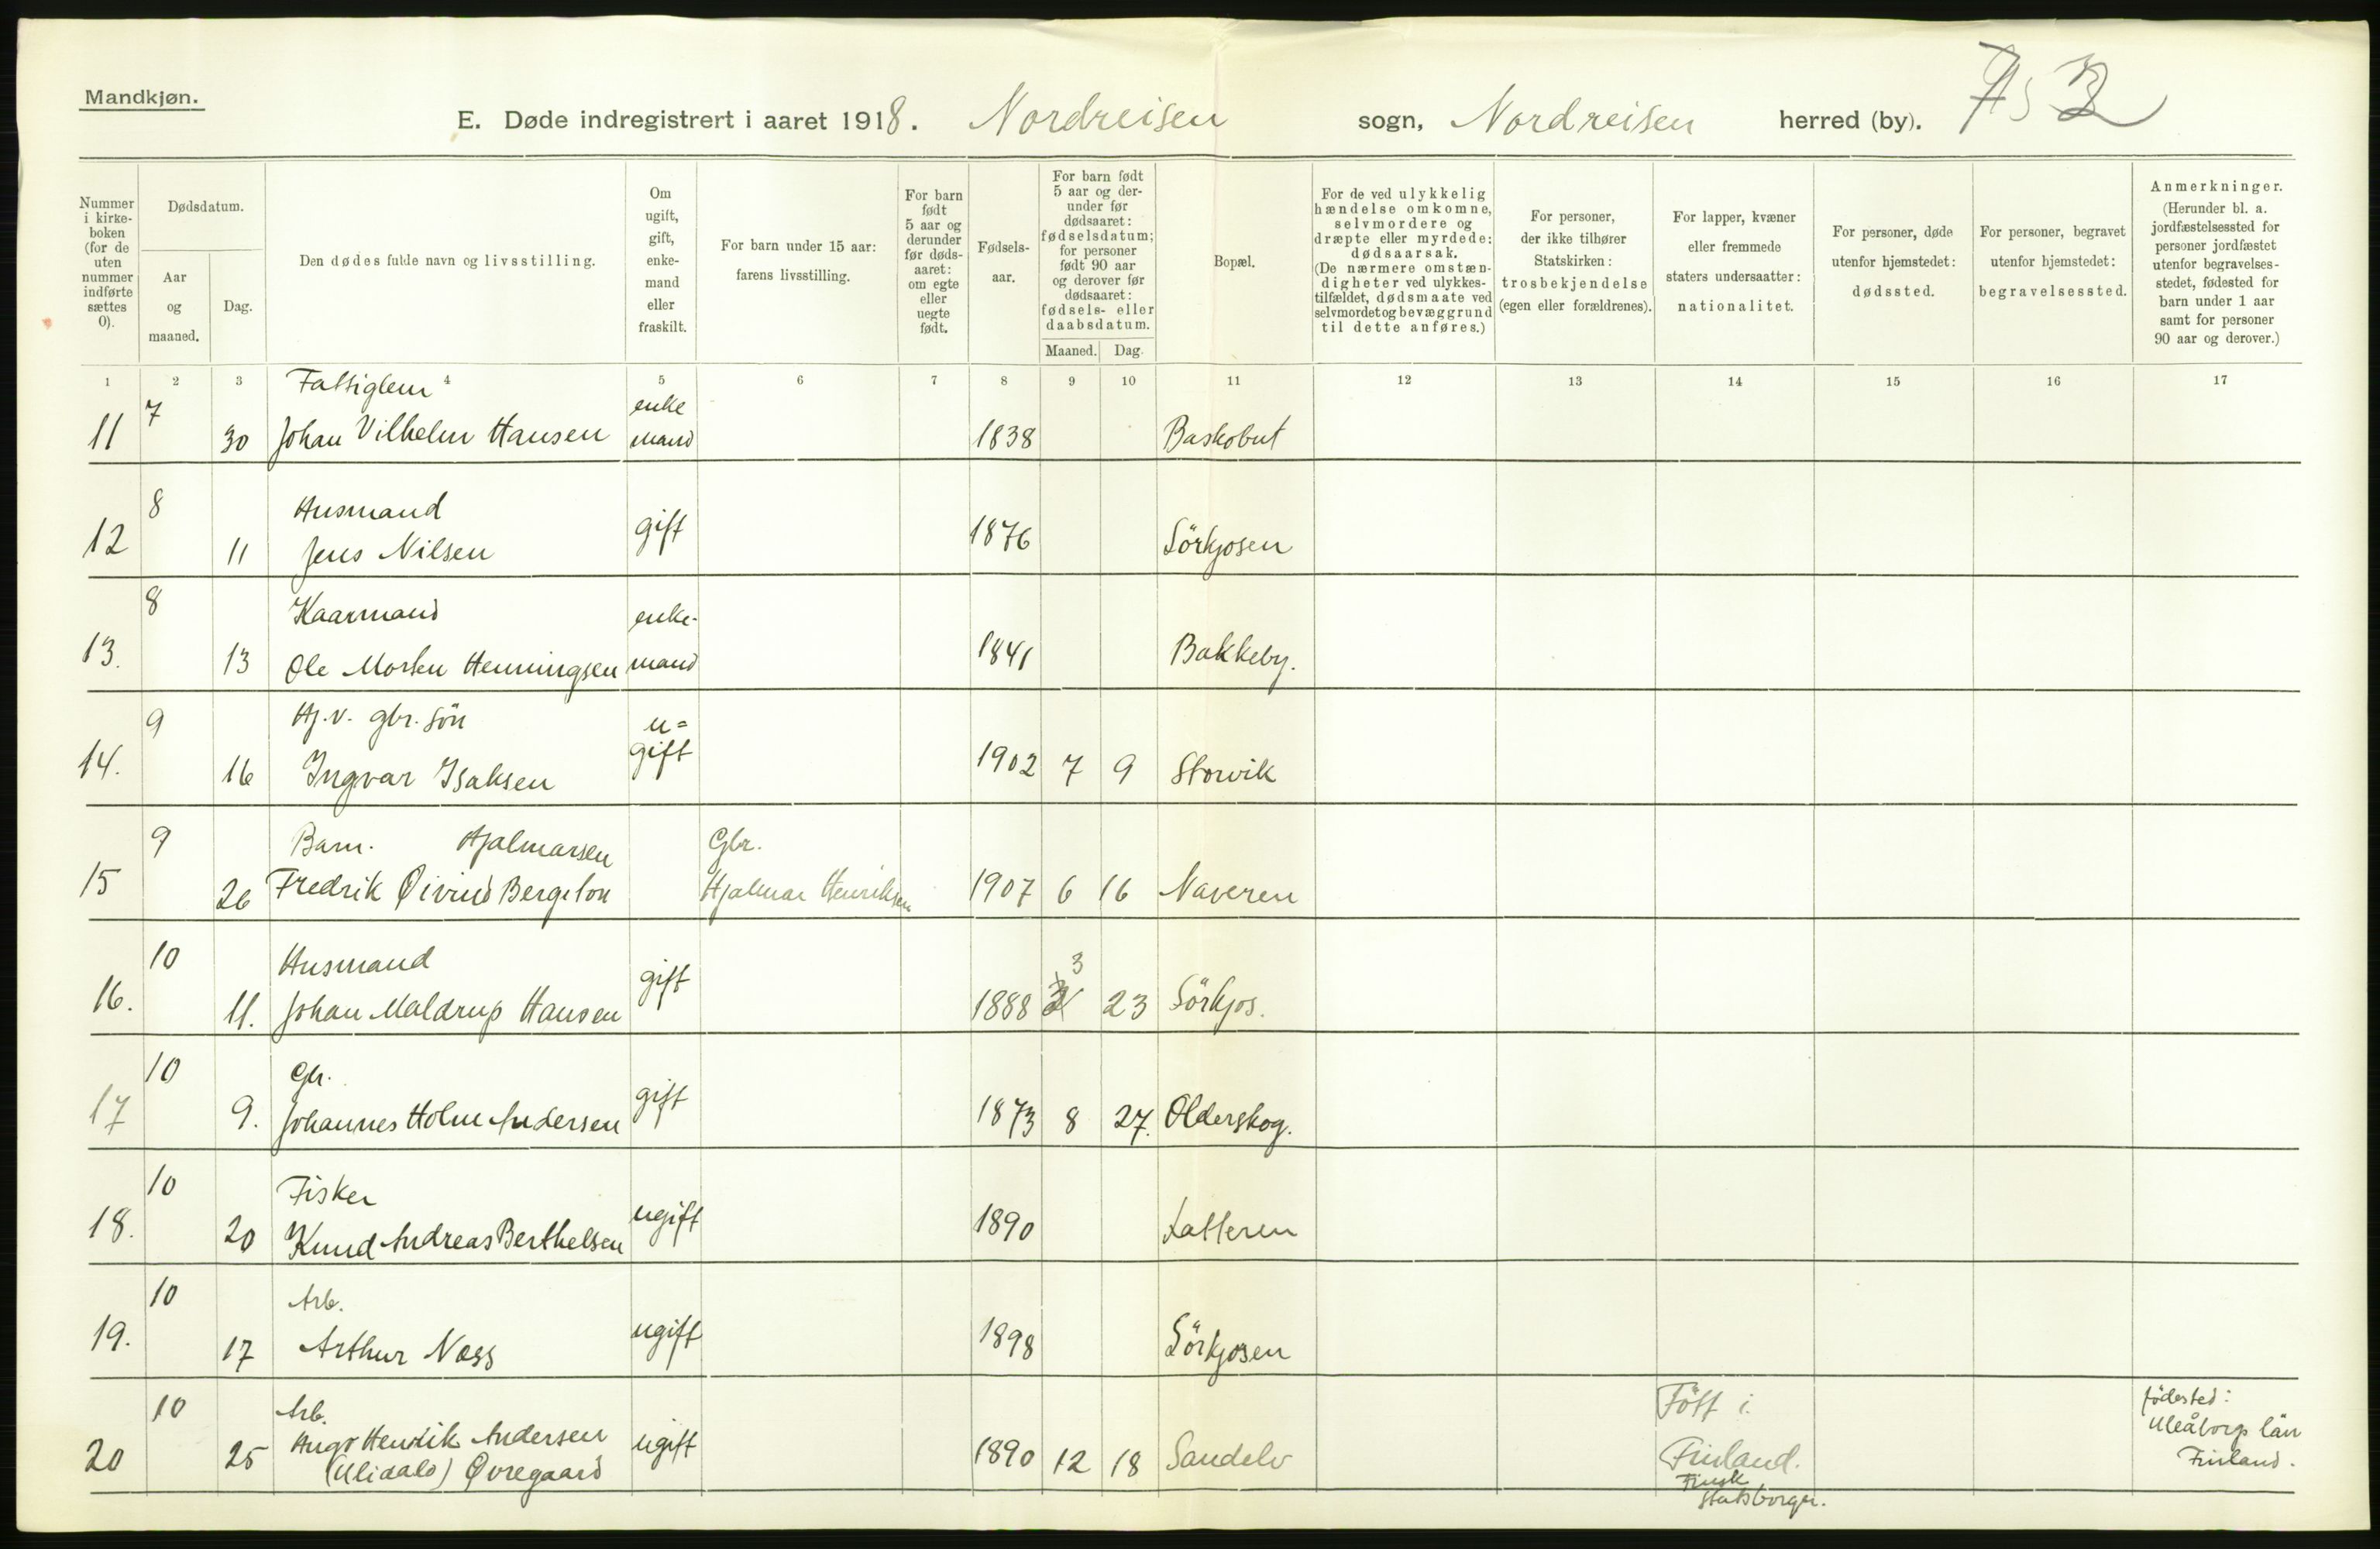 Mandkjøn.
E. Døde indregistrert i aaret 1918. Nordreisen sogn, Nordreisen herred (by).
Nummer i kirke-boken (for de uten nummer indførte sættes 0).
Dødsdatum.
Aar og maaned.
Dag.
Den dødes fulde navn og livsstilling.
Om ugift, gift, enke-mand eller fraskilt.
For barn under 15 aar: farens livsstilling.
For barn født 5 aar og derunder før døds-aaret: om egte eller uegte født.
Fødsels-aar.
For barn født 5 aar og der-under før dødsaaret: fødselsdatum; for personer født 90 aar og derover før dødsaaret: fødsels- eller daabsdatum.
Maaned. Dag.
Bopæl.
For de ved ulykkelig hændelse omkomne, selvmordere og dræpte eller myrdede: dødsaarsak. (De nærmere omstæn-digheter ved ulykkes-tilfældet, dødsmaate ved selvmordet og bevæggrund til dette anføres.)
For personer, der ikke tilhører Statskirken: trosbekjendelse (egen eller forældrenes).
For lapper, kvæner eller fremmede staters undersaatter: nationalitet.
For personer, døde utenfor hjemstedet: dødssted.
For personer, begravet utenfor hjemstedet: begravelsessted.
Anmerkninger. (Herunder bl. a. jordfæstelsessted for personer jordfæstet utenfor begravelses-stedet, fødested for barn under 1 aar samt for personer 90 aar og derover.)
1 2 3 4 5 6 7 8 9 10 11 12 13 14 15 16 17
7 Fattiglem enke
11 30 Johan Vilhelm Hansen mand 1838 Baskobut
8 Husmand
12 11 Jens Nilsen gift 1876 Sörkjosen
8 Kaarmand enke-
13. 13 Ole Morten Henningsen mand 1841 Bakkeby.
9 Hj.v. gbr. sön u=
14. 16 Ingvar Isaksen gift 1902 7 9 Storvik
9 Barn. Hjalmarsen Gbr.
15 26 Fredrik Øivind Bergeton Hjalmar Henriksen 1907 6 16 Naveren
10 Husmand 3
16. 11. Johan Maldrup Hansen gift 1888 23 Sörkjos.
10 Gbr.
17 9. Johannes Holm Andersen gift 1873 8 27. Olderskog.
10 Fisker
18. 20 Knud Andreas Berthelsen ugift 1890 Latteren
10 Arb.
19. 17 Arthur Næss ugift 1898 Sörkjosen
10 Arb. Fött i födested:
20 25 Hugo Henrik Andersen ugift 1890 12 18 Sandelv Finland. Uleåborgs län
(Uliaalo) Øvregaard Finsk Finland.
statsborger.